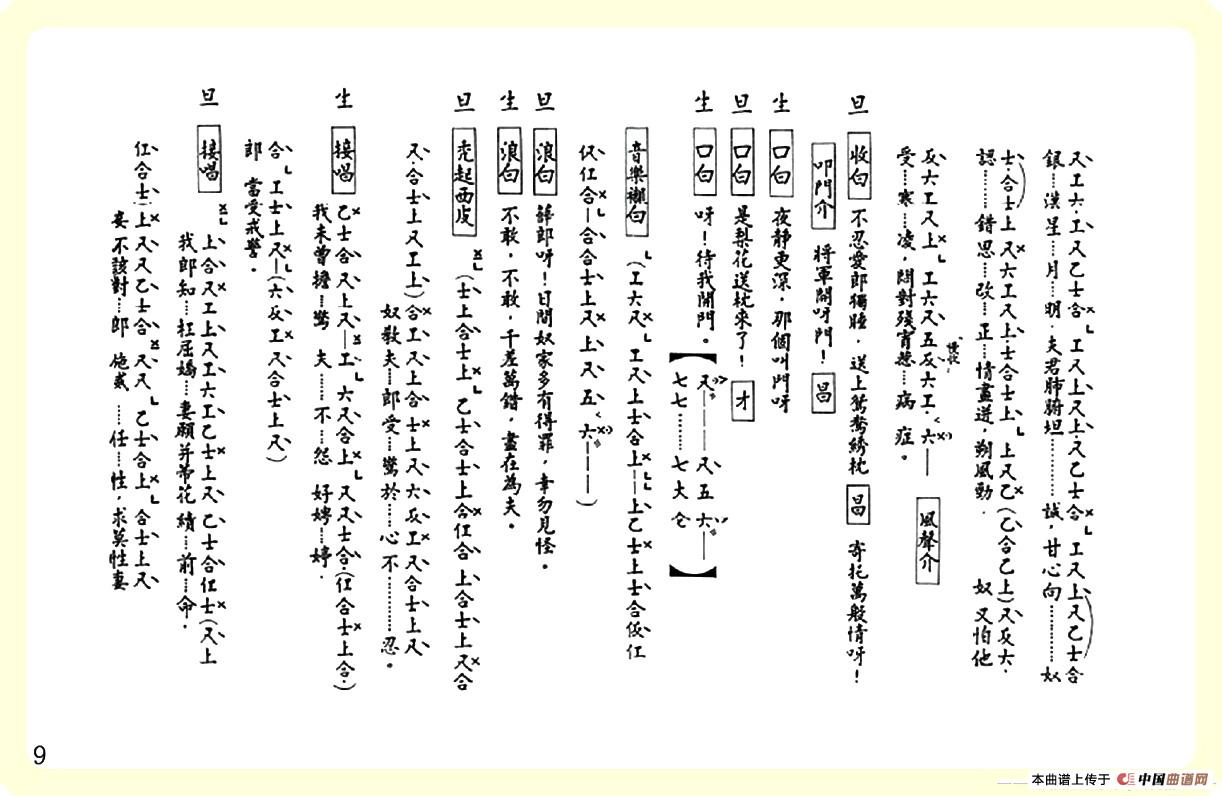 尺工六·工尺乙士合 工尺上尺上尺乙士合 工尺上尺乙士合
銀……漢星……月……明·夫君肺腑坦…………誠,甘心向…………奴
士·合士上 尺六工尺上士合士上 上尺乙(乙合乙上)尺反六·
認………錯思……改……正……情畫迸,朔風動· 奴 又怕他
反六工尺上 工六尺五反六工·六——
受……寒……凌,問對殘宵……病 症。
風聲介
旦 收白 不忍愛郎獨睡,送上鴛鴦綉枕 昌 寄托萬般情呀!
叩門介 將軍開呀門! 昌
生 口白 夜靜更深,那個叫門呀
旦 口白 是梨花送枕來了! 才
生 口白 呀!待我開門。
【尺———尺五六·——
七七………七大仓】
音樂襯白 (工六尺 工尺上士合上——上乙士上士合仮仜
仅仜合—合合士上尺上尺五六————)
旦 浪白 薛郎呀!日間奴家多有得罪,幸勿見怪。
生 浪白 不敢,不敢,千差萬錯,盡在為夫。
旦 禿起西皮 (士上合士上 乙士合士上合仜合 上合士上尺合
尺·合士上尺工上)合工尺上合士上尺六反工尺合士上尺
奴教夫……郎受……驚於……心不…………忍。
生 接唱 乙士合尺上尺—工 六尺合上 尺尺士合·(仜合士上合·)
我未曾擔……驚 夫……不……怨 好娉……婷·
合 工士上尺—(六反工尺合士上尺)
郎 當受戒警。
旦 接唱 上合尺工上尺工六工乙士上尺 乙士合仜士(尺上
我郎知……枉屈嬌……妻願并蒂花 續……前……命·
仜合士)上尺尺乙士合 尺尺 乙士合上 合士上尺
妾不該對……郎 施威 ……任……性,求莫性妻
9
本曲谱上传于 中国曲谱网